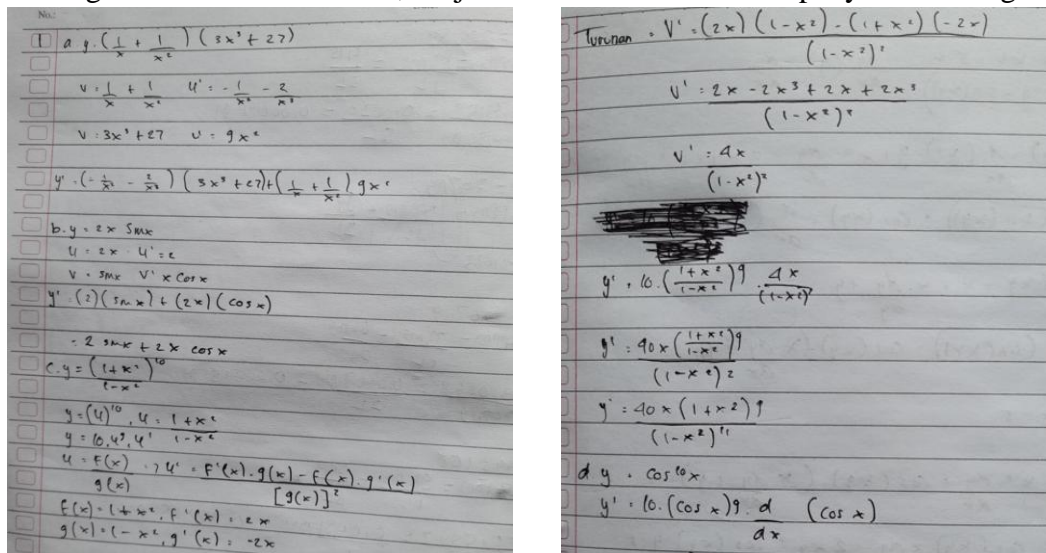 No:
1 a y. (1/x + 1/x²) (3x³ + 27)
v = 1/x + 1/x² u' = -1/x² - 2/x³
v = 3x³ + 27 u = 9x²
y' = (-1/x² - 2/x³) (3x³ + 27) + (1/x + 1/x²) 9x²
b. y = 2x sinx
u = 2x u' = 2
v = sinx v' x cos x
y' = (2)(sin x) + (2x)(cos x)
= 2 sinx + 2x cos x
c. y = ((1+x²)/(1-x²))¹⁰
y = (u)¹⁰, u = (1+x²)/(1-x²)
y = 10.u⁹.u'
u = f(x)/g(x) → u' = (f'(x).g(x) - f(x).g'(x))/[g(x)]²
f(x) = 1+x², f'(x) = 2x
g(x) = 1-x², g'(x) = -2x
Turunan = v' = ((2x)(1-x²) - (1+x²)(-2x))/(1-x²)²
v' = (2x - 2x³ + 2x + 2x³)/(1-x²)²
v' = 4x/(1-x²)²
y' = 10.((1+x²)/(1-x²))9 . 4x/(1-x²)²
y' = 40x((1+x²)/(1-x²))9/(1-x²)2
y' = 40x(1+x2)9/(1-x²)¹¹
d y = cos¹⁰x
y' = 10.(cos x)9 . d/dx (cos x)